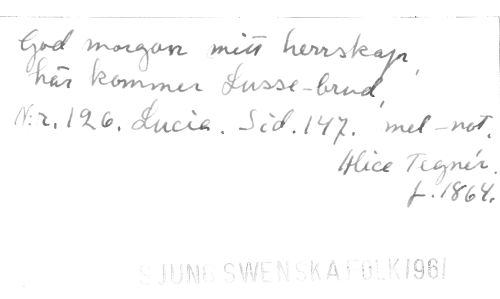 God morgon mitt herrskap,
här kommer Lusse-brud,
N:r. 126. Lucia. Sid. 147. mel-not.
Alice Tegnér.
f. 1864.
SJUNG SWENSKA FOLK 1961